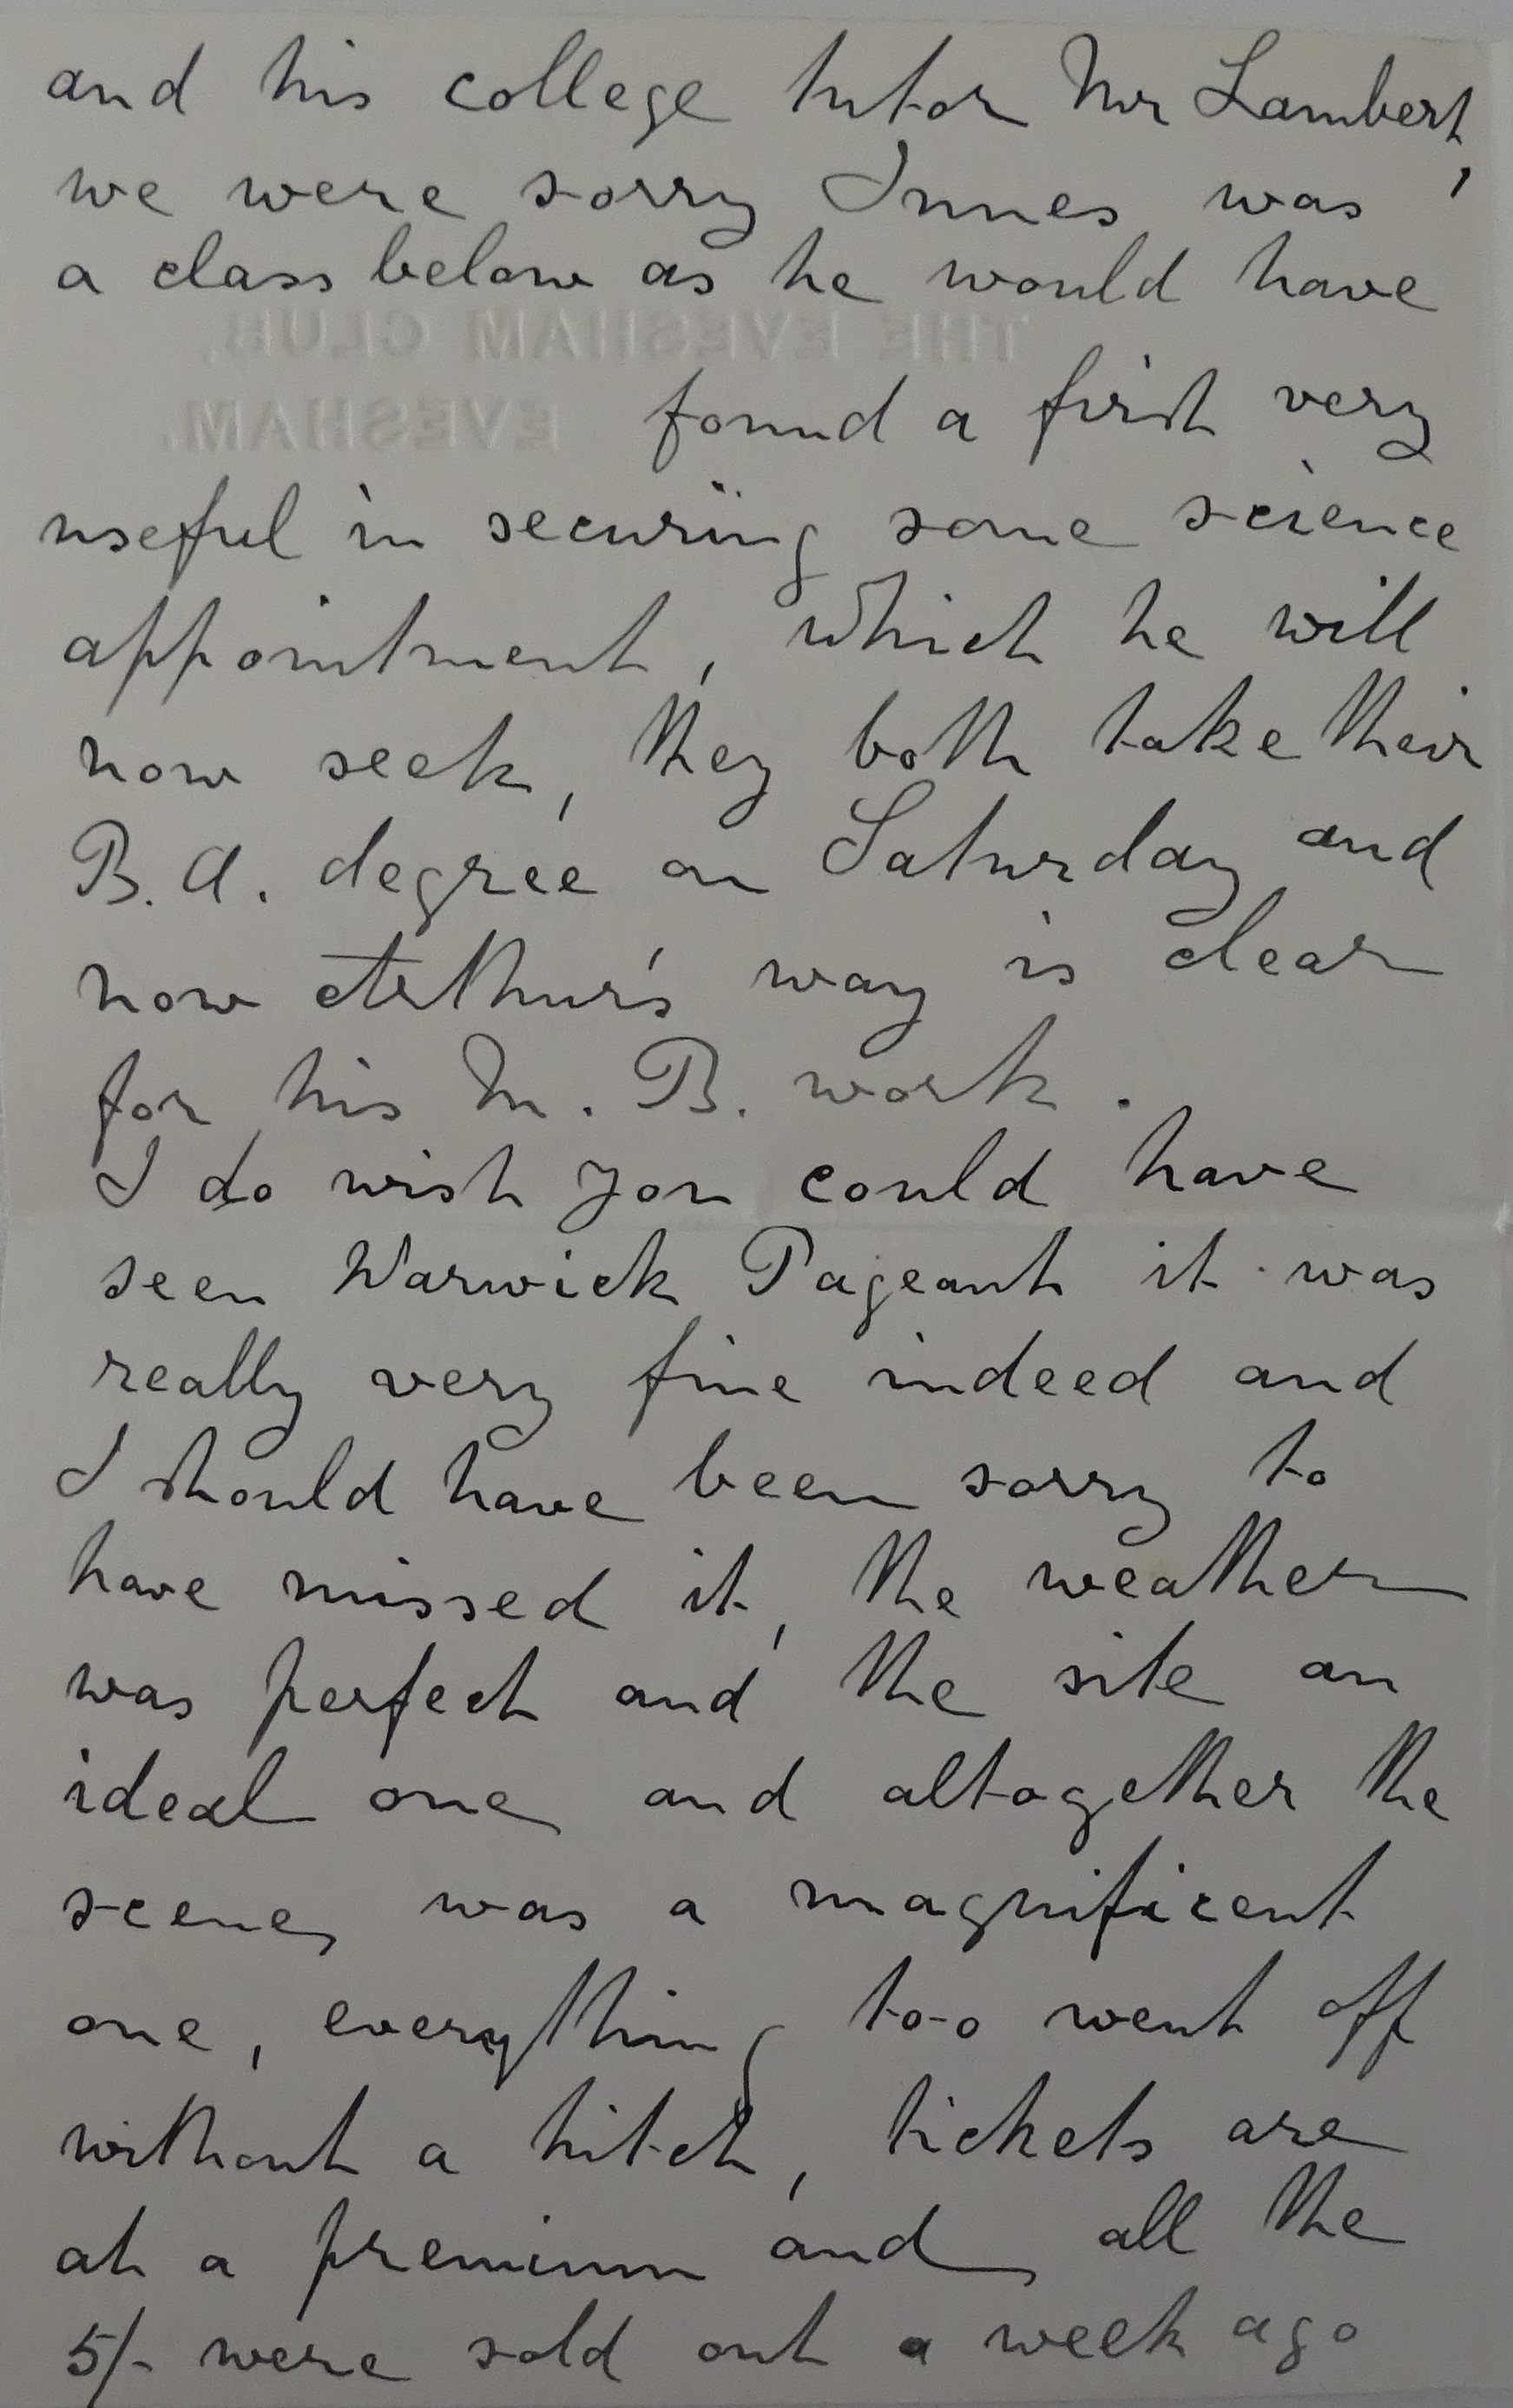 and his college tutor Mr Lambert,
we were sorry Innes was
a class below as he would have
THE EVESHAM CLUB,
EVESHAM.
found a first very
useful in securing some science
appointment, which he will
now seek, they both take their
B.A. degree on Saturday and
now Arthur's way is clear
for his M.B. work.
I do wish you could have
seen Warwick Pageant it was
really very fine indeed and
I should have been sorry to
have missed it, the weather
was perfect and the site an
ideal one and altogether the
scene was a magnificent
one, everything too went off
without a hitch, tickets are
at a premium and all the
5/- were sold out a week ago